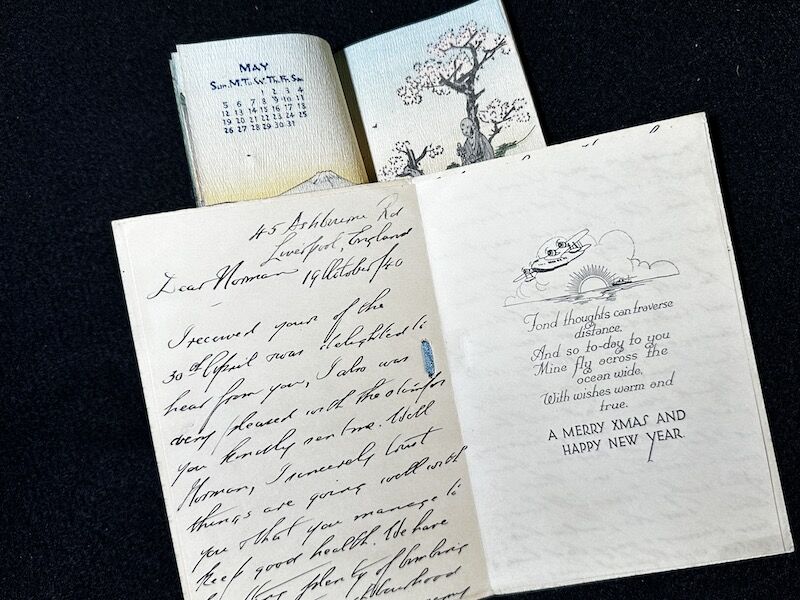 MAY
Sun. M. Tu. W. Th. Fr. Sa.
1 2 3 4
5 6 7 8 9 10 11
12 13 14 15 16 17 18
19 20 21 22 23 24 25
26 27 28 29 30 31
45 Ashbourne Rd
Liverpool, England
Dear Norman 19 October/40
I received yours of the
30th April & was delighted to
hear from you, I also was
very pleased with the stamps
you kindly sent me. Well
Norman, I sincerely trust
things are going well with
you & that you manage to
keep good health. We have
plenty of bombing
Fond thoughts can traverse
distance,
And so to-day to you
Mine fly across the
ocean wide,
With wishes warm and
true.
A MERRY XMAS AND
HAPPY NEW YEAR.